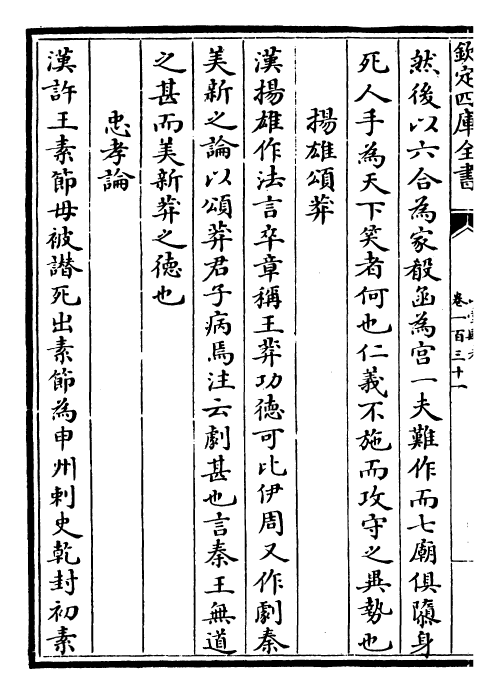 欽定四庫全書
卷一百三十一
然後以六合為家殽函為宫一夫難作而七廟俱隳身
死人手為天下笑者何也仁義不施而攻守之異勢也
揚雄頌莽
漢揚雄作法言卒章稱王莽功徳可比伊周又作劇秦
美新之論以頌莽君子病焉注云劇甚也言秦王無道
之甚而美新莽之徳也
忠孝論
漢許王素節母被譖死出素節為申州刺史乾封初素